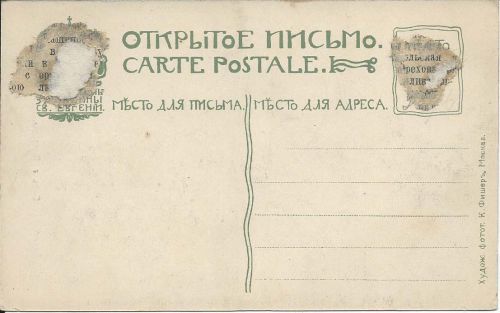 ОТКРЫТОЕ ПИСЬМО.
CARTE POSTALE.
СВ. ЕВГЕНІИ.
МѢСТО ДЛЯ ПИСЬМА.
МѢСТО ДЛЯ АДРЕСА.
Худож. фотот. К. Фишеръ, Москва.